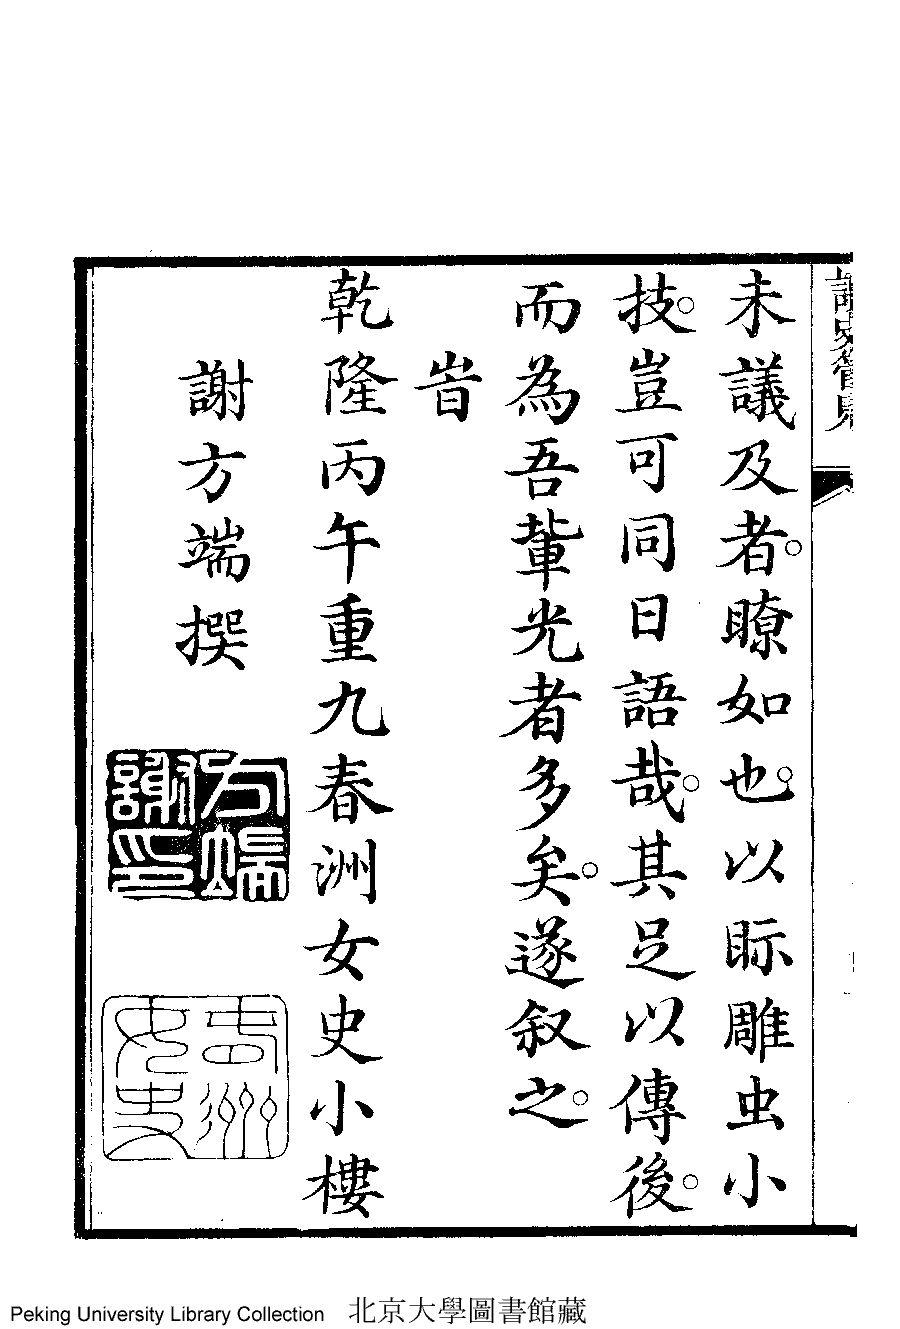 讀史管見
未議及者。瞭如也。以眎雕虫小
技。豈可同日語哉。其足以傳後。
而為吾軰光者多矣。遂叙之。
旹
乾隆丙午重九春洲女史小樓
謝方端撰
方端
謝印
春洲
女史
Peking University Library Collection 北京大學圖書館藏